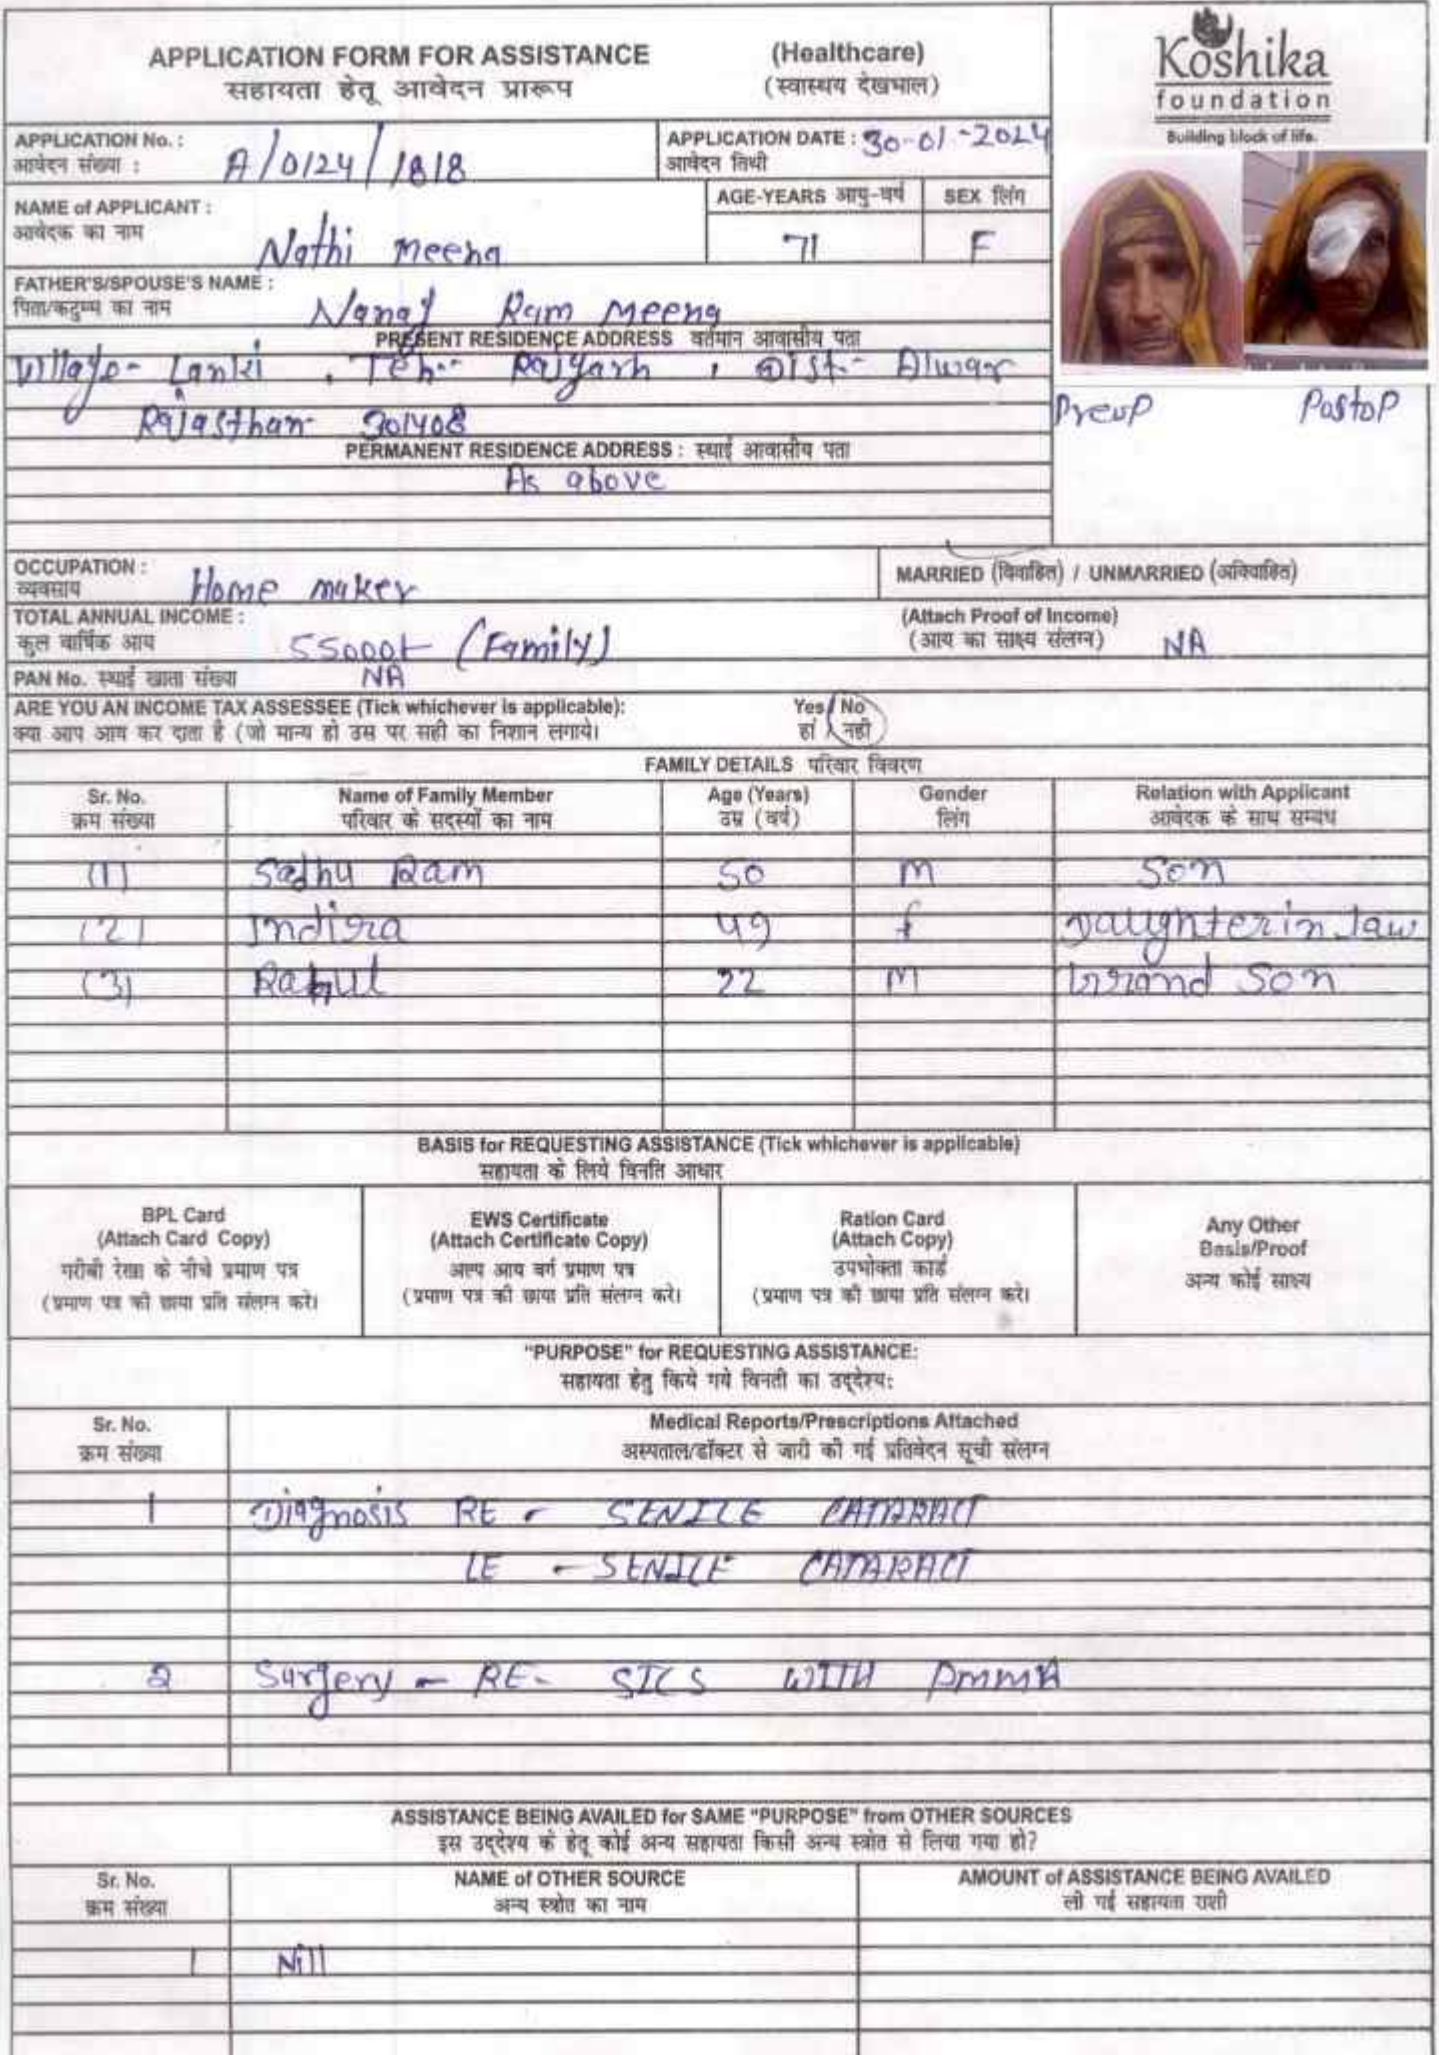 APPLICATION FORM FOR ASSISTANCE (Healthcare)
सहायता हेतू आवेदन प्रारूप (स्वास्थय देखभाल)
Koshika
foundation
Building block of life.
APPLICATION No. : A/0124/1818 APPLICATION DATE : 30-01-2024
आवेदन संख्या : आवेदन तिथी
NAME of APPLICANT : Nathi Meena AGE-YEARS आयु-वर्ष SEX लिंग
आवेदक का नाम 71 F
FATHER'S/SPOUSE'S NAME :
पिता/कटुम्ब का नाम Ram Meena
PRESENT RESIDENCE ADDRESS वर्तमान आवासीय पता
Village- Lanki , Teh.- Rajgarh , Dist- Alwar
Rajasthan- 301408
Preop Postop
PERMANENT RESIDENCE ADDRESS : स्थाई आवासीय पता
As above
OCCUPATION : Home maker MARRIED (विवाहित) / UNMARRIED (अविवाहित)
व्यवसाय
TOTAL ANNUAL INCOME : (Attach Proof of Income)
कुल वार्षिक आय 55000/- (Family) (आय का साक्ष्य संलग्न) NA
PAN No. स्थाई खाता संख्या NA
ARE YOU AN INCOME TAX ASSESSEE (Tick whichever is applicable): Yes / No
क्या आप आय कर दाता है (जो मान्य हो उस पर सही का निशान लगाये। हां / नही
FAMILY DETAILS परिवार विवरण
Sr. No. Name of Family Member Age (Years) Gender Relation with Applicant
क्रम संख्या परिवार के सदस्यों का नाम उम्र (वर्ष) लिंग आवेदक के साथ सम्बंध
(1) Sadhu Ram 50 M Son
(2) Indira 49 f Daughter in law
(3) Rahul 22 M Grand Son
BASIS for REQUESTING ASSISTANCE (Tick whichever is applicable)
सहायता के लिये विनति आधार
BPL Card
(Attach Card Copy)
गरीबी रेखा के नीचे प्रमाण पत्र
(प्रमाण पत्र की छाया प्रति संलग्न करे।
EWS Certificate
(Attach Certificate Copy)
अल्प आय वर्ग प्रमाण पत्र
(प्रमाण पत्र की छाया प्रति संलग्न करे।
Ration Card
(Attach Copy)
उपभोक्ता कार्ड
(प्रमाण पत्र की छाया प्रति संलग्न करे।
Any Other
Basis/Proof
अन्य कोई साक्ष्य
"PURPOSE" for REQUESTING ASSISTANCE:
सहायता हेतु किये गये विनती का उद्देश्य:
Sr. No. Medical Reports/Prescriptions Attached
क्रम संख्या अस्पताल/डॉक्टर से जारी की गई प्रतिवेदन सूची संलग्न
1 Diagnosis RE - SENILE CATARACT
LE - SENILE CATARACT
2 Surgery - RE- SICS WITH PMMA
ASSISTANCE BEING AVAILED for SAME "PURPOSE" from OTHER SOURCES
इस उद्देश्य के हेतू कोई अन्य सहायता किसी अन्य स्त्रोत से लिया गया हो?
Sr. No. NAME of OTHER SOURCE AMOUNT of ASSISTANCE BEING AVAILED
क्रम संख्या अन्य स्त्रोत का नाम ली गई सहायता राशी
1 Nill